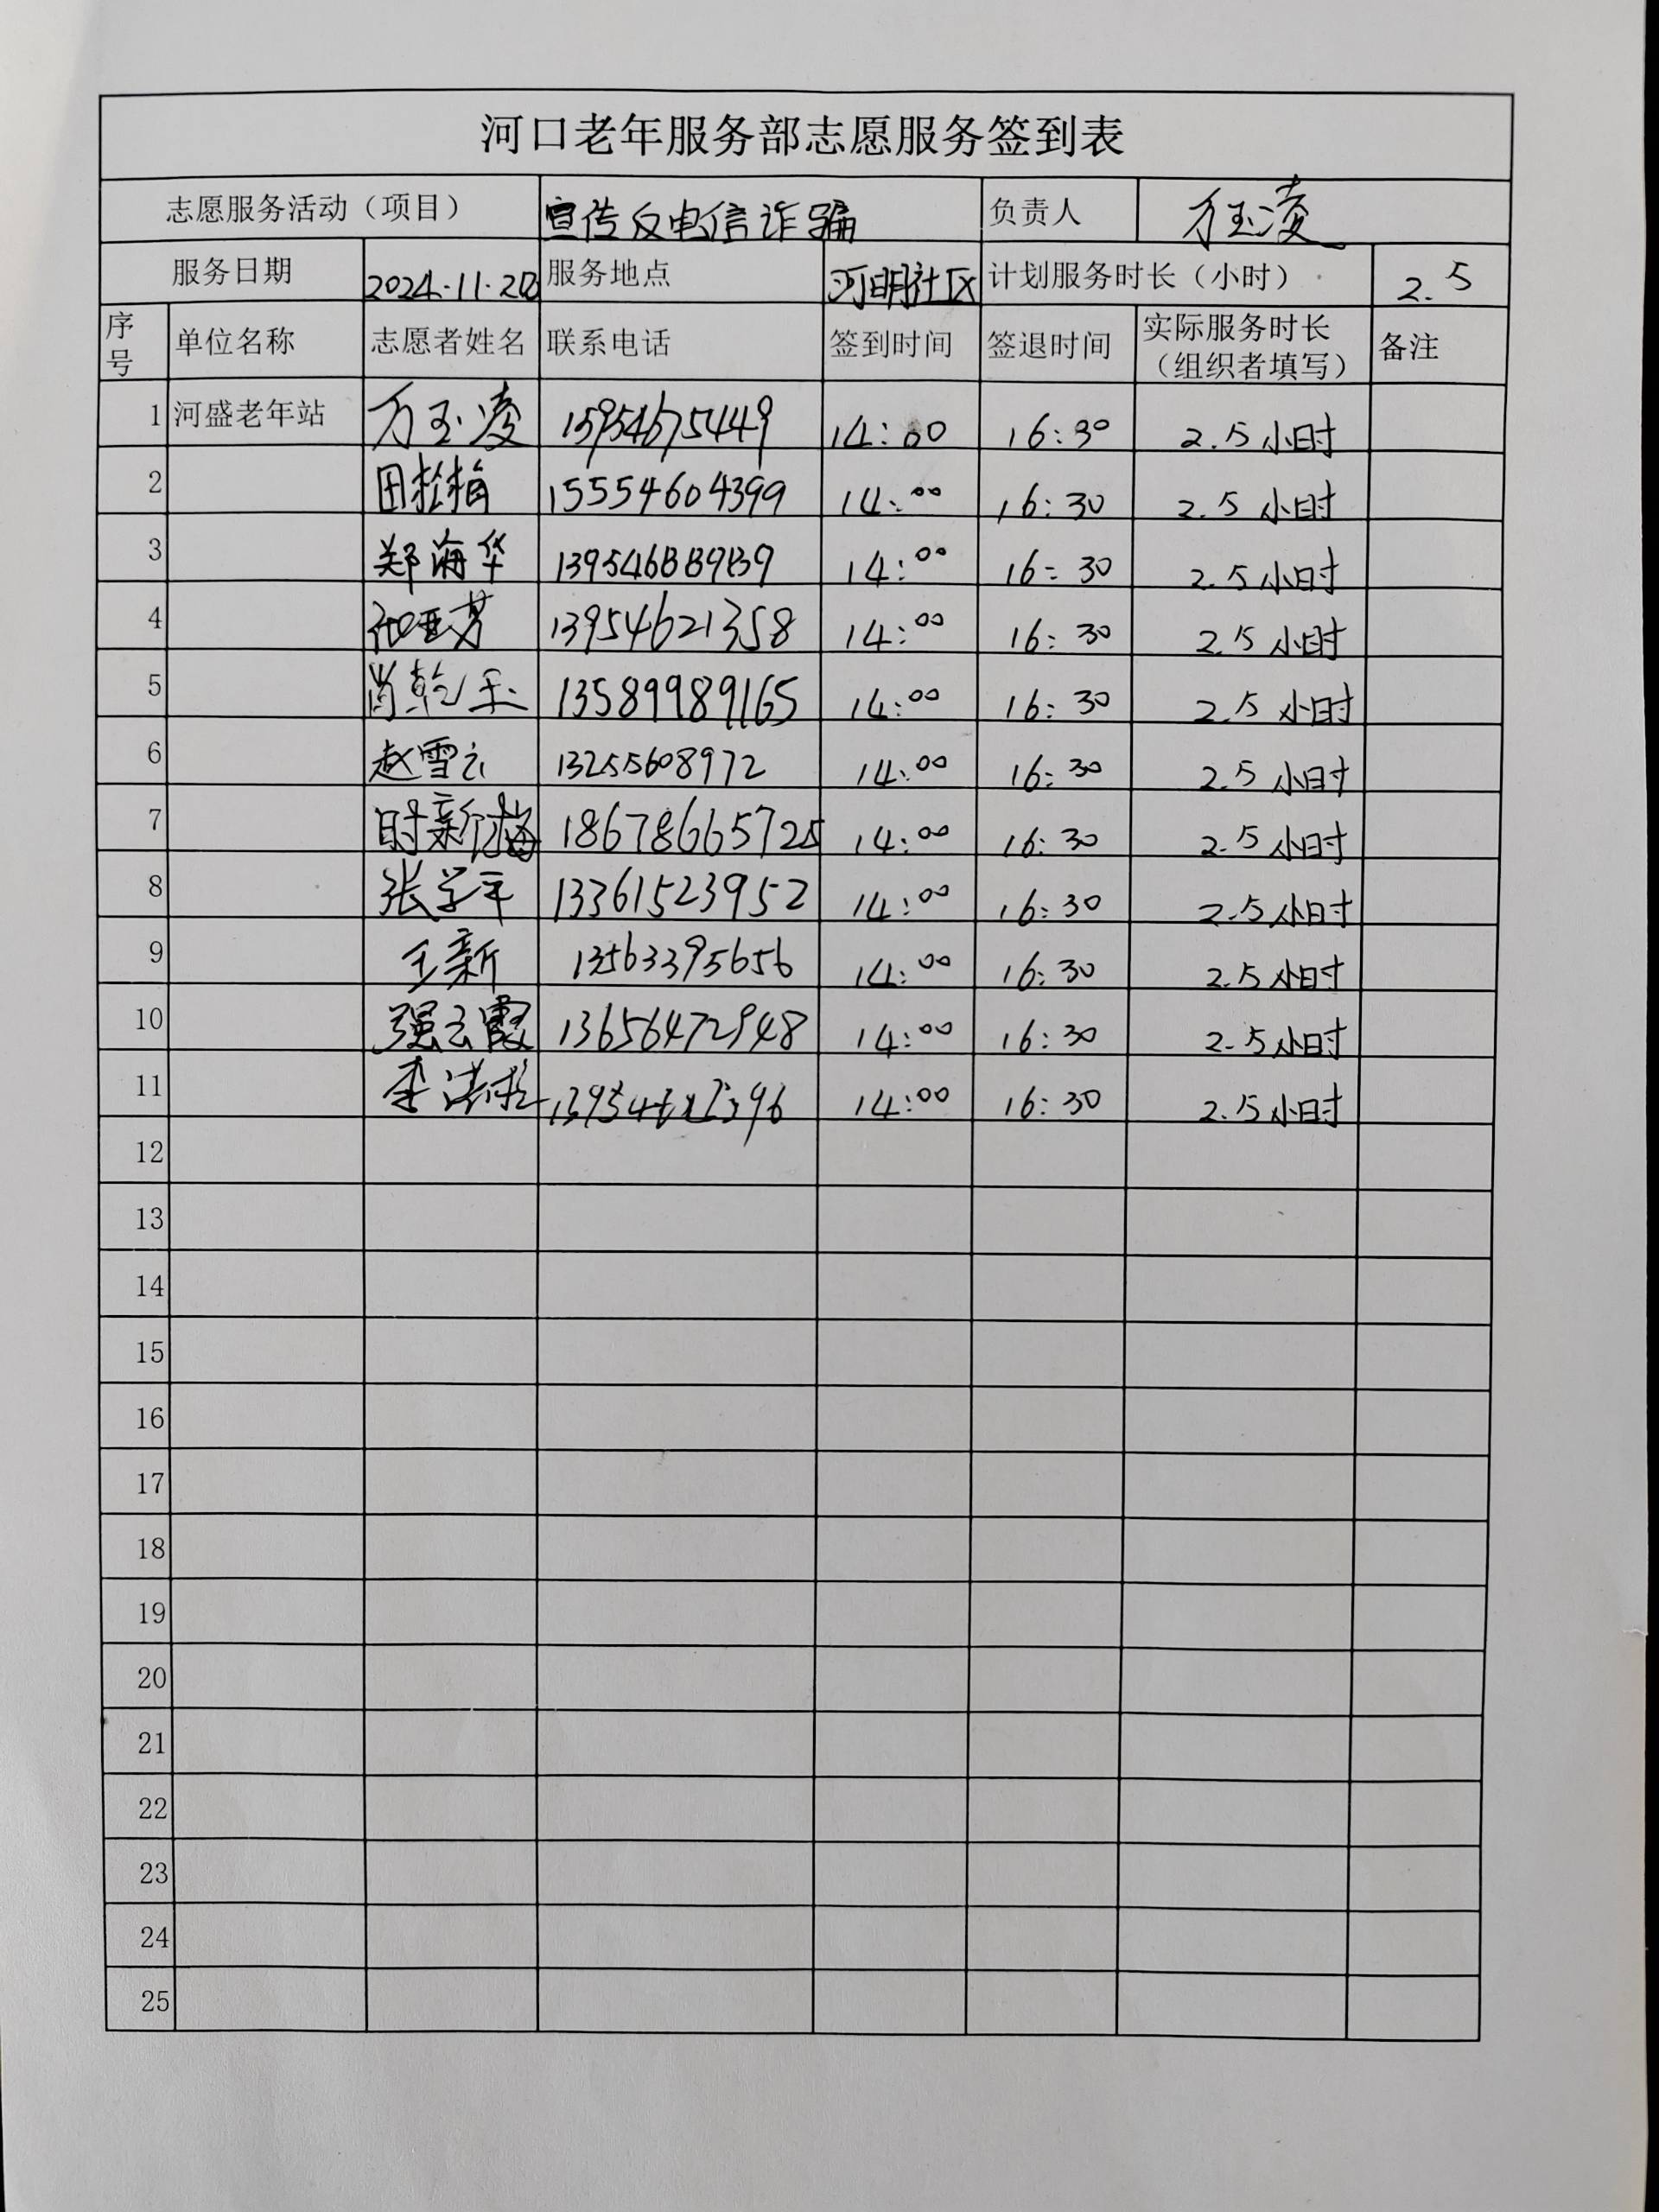 河口老年服务部志愿服务签到表
志愿服务活动（项目） 宣传反电信诈骗 负责人 万玉凌
服务日期 2024.11.20 服务地点 河明社区 计划服务时长（小时） 2.5
序号 单位名称 志愿者姓名 联系电话 签到时间 签退时间 实际服务时长（组织者填写） 备注
1 河盛老年站 万玉凌 15954675449 14:00 16:30 2.5小时
2 15554604399 14:00 16:30 2.5小时
3 郑海华 14:00 16:30 2.5小时
4 13954621358 14:00 16:30 2.5小时
5 肖乾玉 13589989165 14:00 16:30 2.5小时
6 赵雪云 13255608972 14:00 16:30 2.5小时
7 时新梅 18678665725 14:00 16:30 2.5小时
8 张学平 13361523952 14:00 16:30 2.5小时
9 王新 13563395656 14:00 16:30 2.5小时
10 强云霞 13656472948 14:00 16:30 2.5小时
11 14:00 16:30 2.5小时
12
13
14
15
16
17
18
19
20
21
22
23
24
25